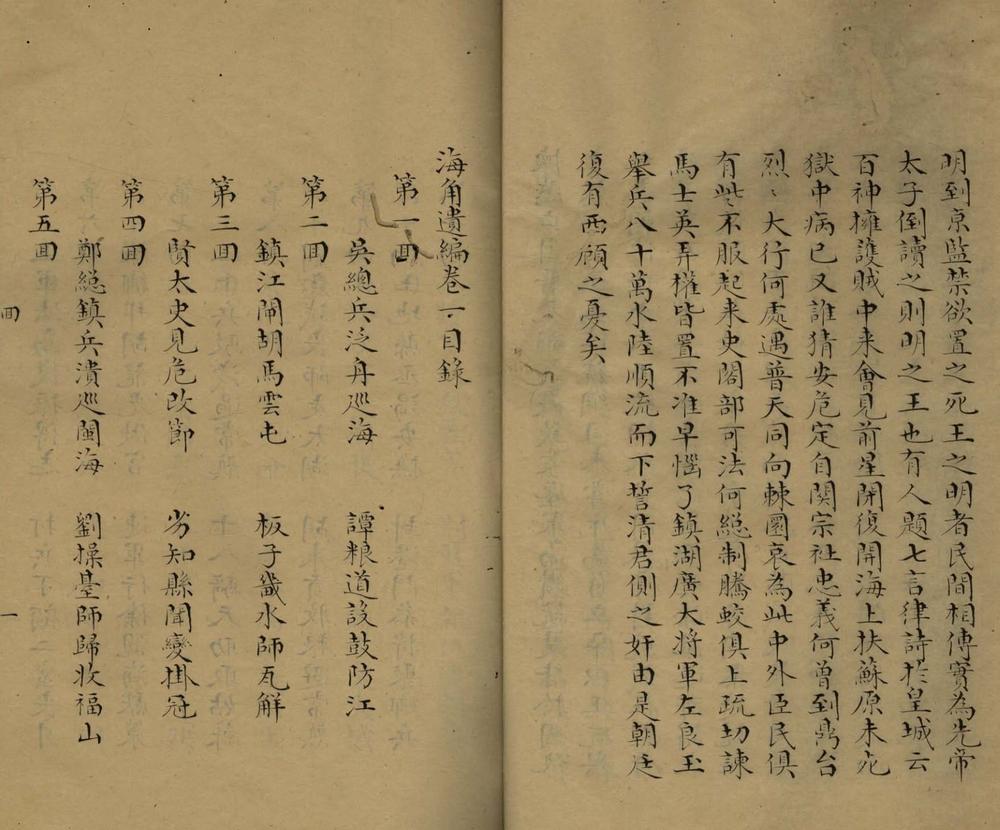 明到京監禁欲置之死王之明者民間相傳實為先帝
太子倒讀之則明之王也有人題七言律詩於皇城云
百神擁護賊中来會見前星閉復開海上扶蘇原未死
獄中病已又誰猜安危定自関宗社忠義何曾到鼎台
烈〻大行何處遇普天同向棘圜哀為此中外臣民俱
有些不服起来史閣部可法何總制騰蛟俱上疏切諫
馬士英弄權皆置不准早惱了鎮湖廣大将軍左良玉
舉兵八十萬水陸順流而下誓清君側之奸由是朝廷
復有西顧之憂矣
海角遺編卷一目錄
第一回
吳總兵泛舟巡海 譚粮道設鼓防江
第二回
鎮江閙胡馬雲屯 板子磯水師瓦解
第三回
賢太史見危改節 劣知縣聞變掛冠
第四回
鄭総鎮兵潰巡閩海 劉操臺師歸收福山
第五回
回 一